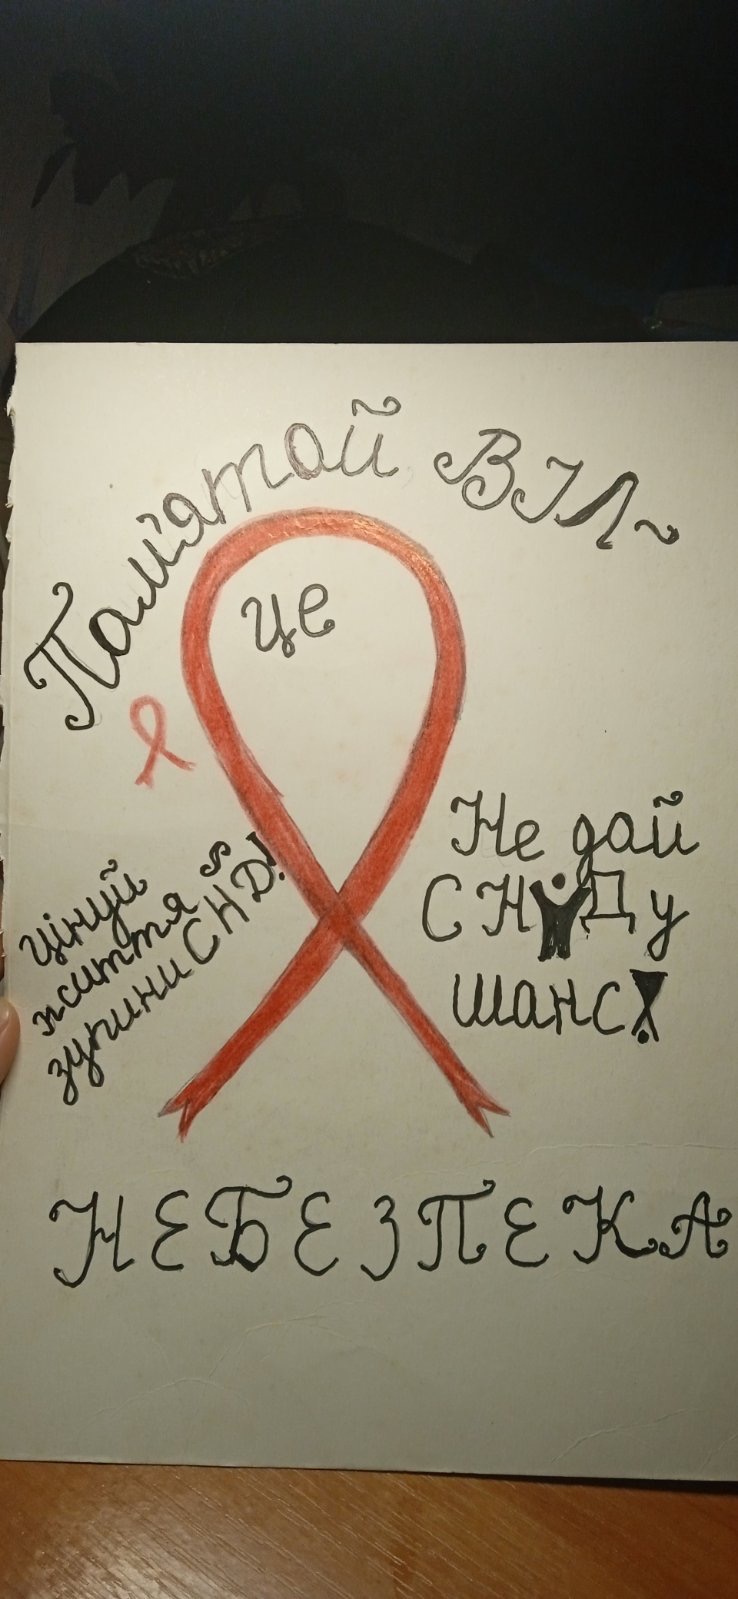 Пам'ятай ВІЛ~
це
Цінуй
життя
зупини СНД!
Не дай
СНІДу
шанс!
НЕБЕЗПЕКА